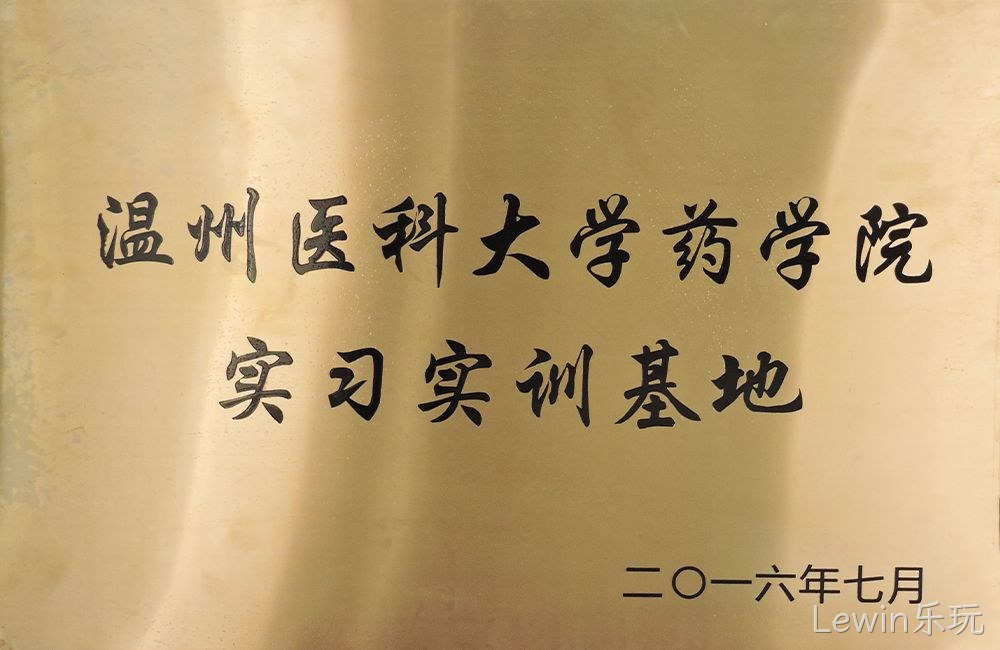 温州医科大学药学院
实习实训基地
二〇一六年七月
Lewin乐玩